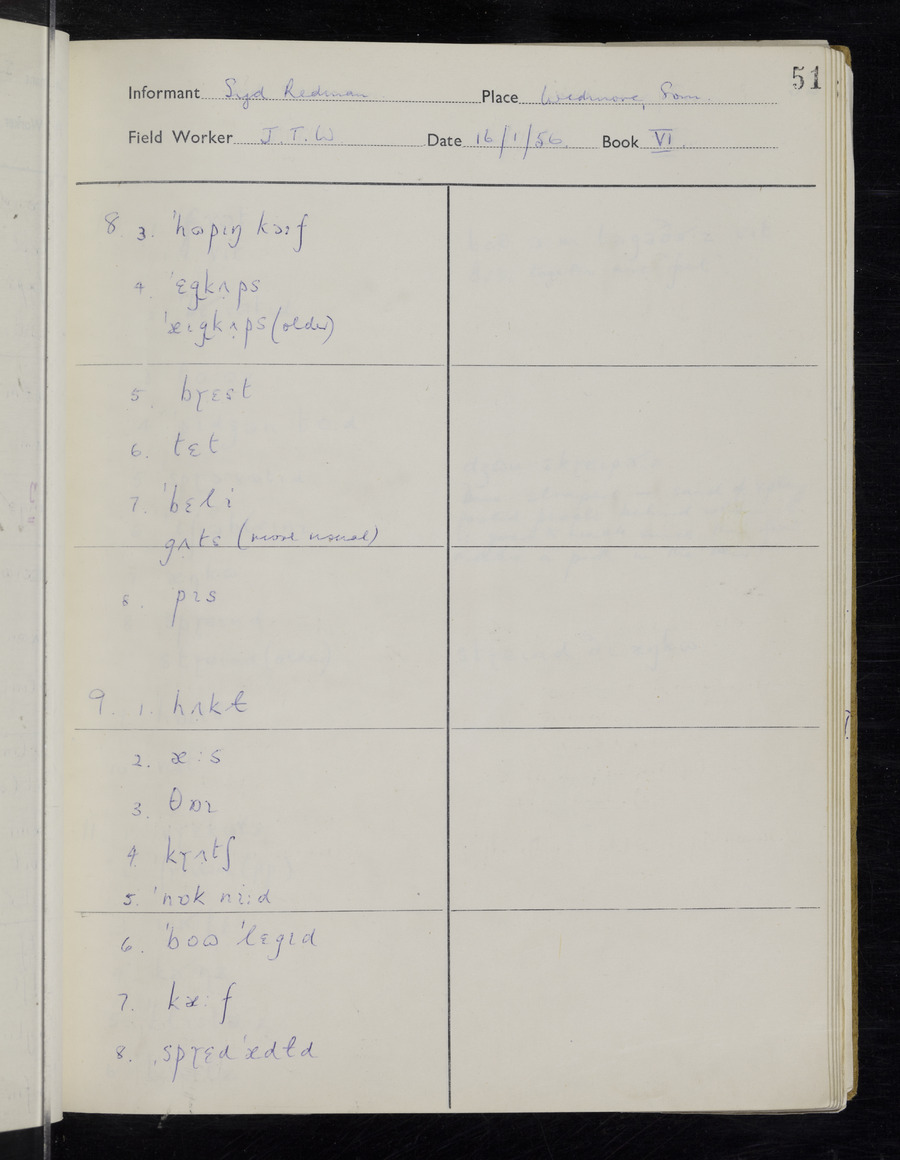 51
Informant Syd Redman Place Wedmore, Som.
Field Worker J.T.W Date 16/1/56. Book VI.
8. 3. ˈhɷpɪŋ kɔɪf
4. ˈɛgkʌps
ˈæɪgkʌps (older)
5. bɽɛst
6. tɛt
7. ˈbɛli
gʌts (more usual)
8. pɪs
9. 1. hʌkɫ
2. æːs
3. θɒɪ
4. kɽʌtʃ
5. ˈnɒk niːd
6. ˈboɷ ˈlɛgɪd
7. kæːf
8. ˌspɽɛdˈædɫd